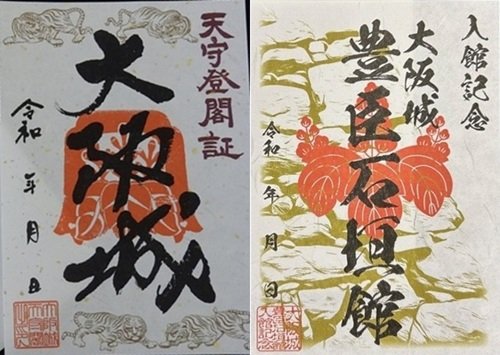 天守登閣証
大阪城
令和 年 月 日
入館記念
大阪城
豊臣石垣館
令和 年 月 日